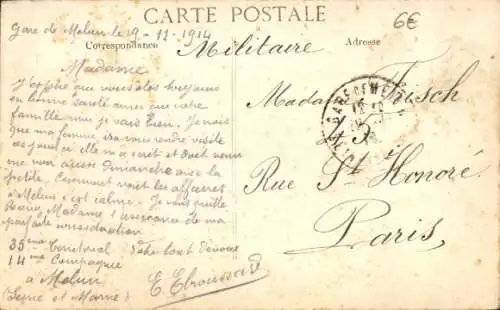 CARTE POSTALE
6€
Gare de Melun le 19-12-1914
Correspondance
Militaire
Adresse
Madame
J'espère que vous êtes toujours
en bonne santé ainsi que votre
famille moi je vais bien. Je sais
que ma femme ira vous rendre visite
ces jours ci elle m'a écrit et doit venir
me voir Dimanche avec la
petite. Comment vont les affaires
à Melun c'est calme. Je vous quitte
Madame l'assurance de ma
parfaite considération
35eme Territorial Votre tout dévoué
14me Compagnie
à Melun
(Seine et Marne)
E. Ebroussard
Madame Frisch
GARE DE MELUN
Rue St Honoré
Paris